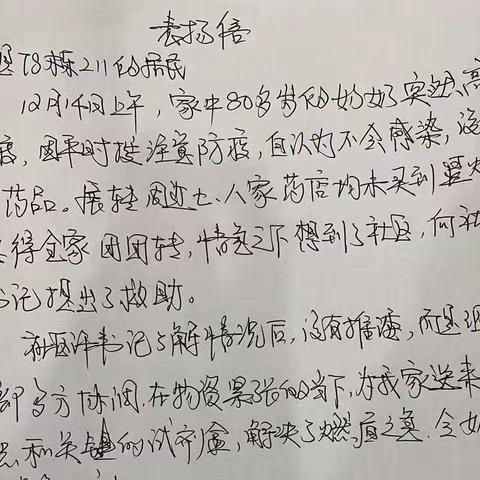 表扬信
T8栋211的居民
12月14日上午，家中80多岁的奶奶突然高
疫，因平时挺注意防疫，自认为不会感染，没
药品。辗转周边七、八家药店均未买到
得全家团团转，情急之下想到了社区，向社
书记提出了救助。
社区许书记了解情况后，没有推诿，而是
部多方协调，在物资紧张的当下，为我家送来
和关键的试剂盒，解决了燃眉之急，令